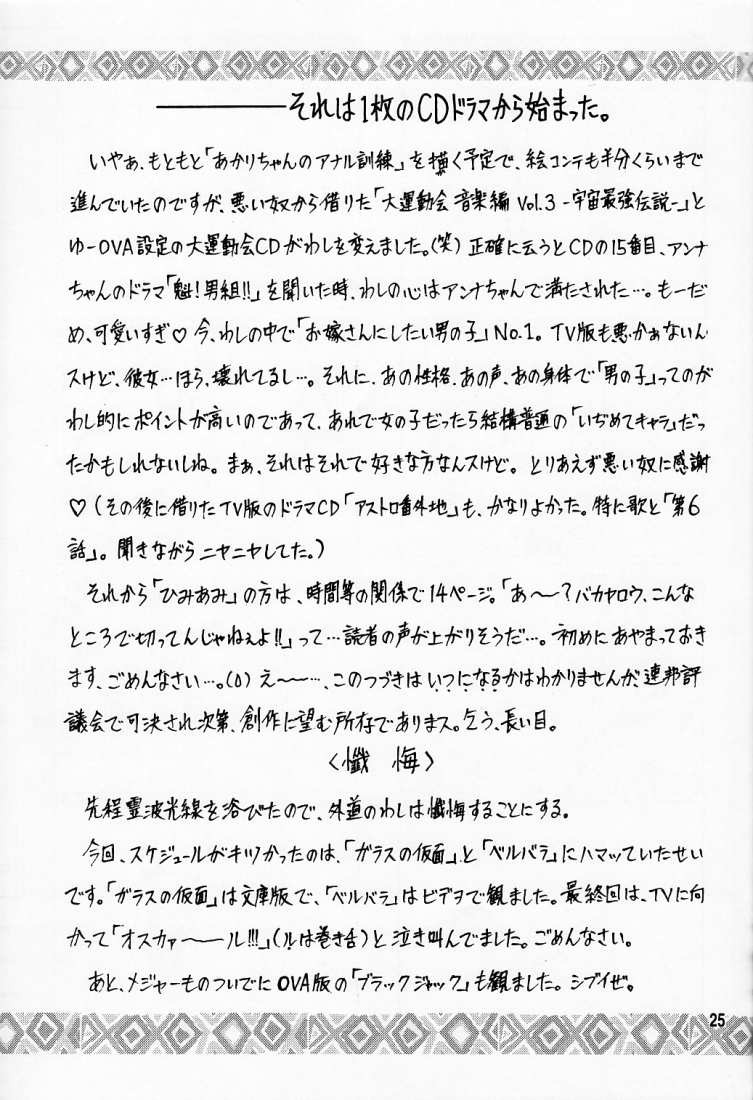 ――――それは1枚のCDドラマから始まった。
いやぁ、もともと「あかりちゃんのアナル訓練」を描く予定で、絵コンテも半分くらいまで
進んでいたのですが、悪い奴から借りた「大運動会 音楽編 Vol.3 -宇宙最強伝説-」と
ゆーOVA設定の大運動会CDがわしを変えました。(笑) 正確に云うとCDの15番目、アンナ
ちゃんのドラマ「魁!男組!!」を聞いた時、わしの心はアンナちゃんで満たされた…。もーだ
め、可愛いすぎ♡ 今、わしの中で「お嫁さんにしたい男の子」No.1。TV版も悪かぁないん
スけど、彼女…ほら、壊れてるし…。それに、あの性格、あの声、あの身体で「男の子」ってのが
わし的にポイントが高いのであって、あれで女の子だったら結構普通の「いぢめてキャラ」だっ
たかもしれないしね。まぁ、それはそれで好きな方なんスけど。とりあえず悪い奴に感謝
♡(その後に借りたTV版のドラマCD「アストロ番外地」も、かなりよかった。特に歌と「第6
話」。聞きながらニヤニヤしてた。)
それから「ひみあみ」の方は、時間等の関係で14ページ。「あ〜〜?バカヤロウ、こんな
ところで切ってんじゃねぇよ!!」って…読者の声が上がりそうだ…。初めにあやまっておき
ます、ごめんなさい…。(0) え〜〜…、このつづきはいつになるかはわかりませんが、連邦評
議会で可決され次第、創作に望む所存でありまス。乞う、長い目。
〈懺 悔〉
先程霊波光線を浴びたので、外道のわしは懺悔することにする。
今回、スケジュールがキツかったのは、「ガラスの仮面」と「ベルバラ」にハマッていたせい
です。「ガラスの仮面」は文庫版で、「ベルバラ」はビデヲで観ました。最終回は、TVに向
かって「オスカァ〜〜ル!!!」(ルは巻き舌)と泣き叫んでました。ごめんなさい。
あと、メジャーものついでにOVA版の「ブラックジャック」も観ました。シブイぜ。
25